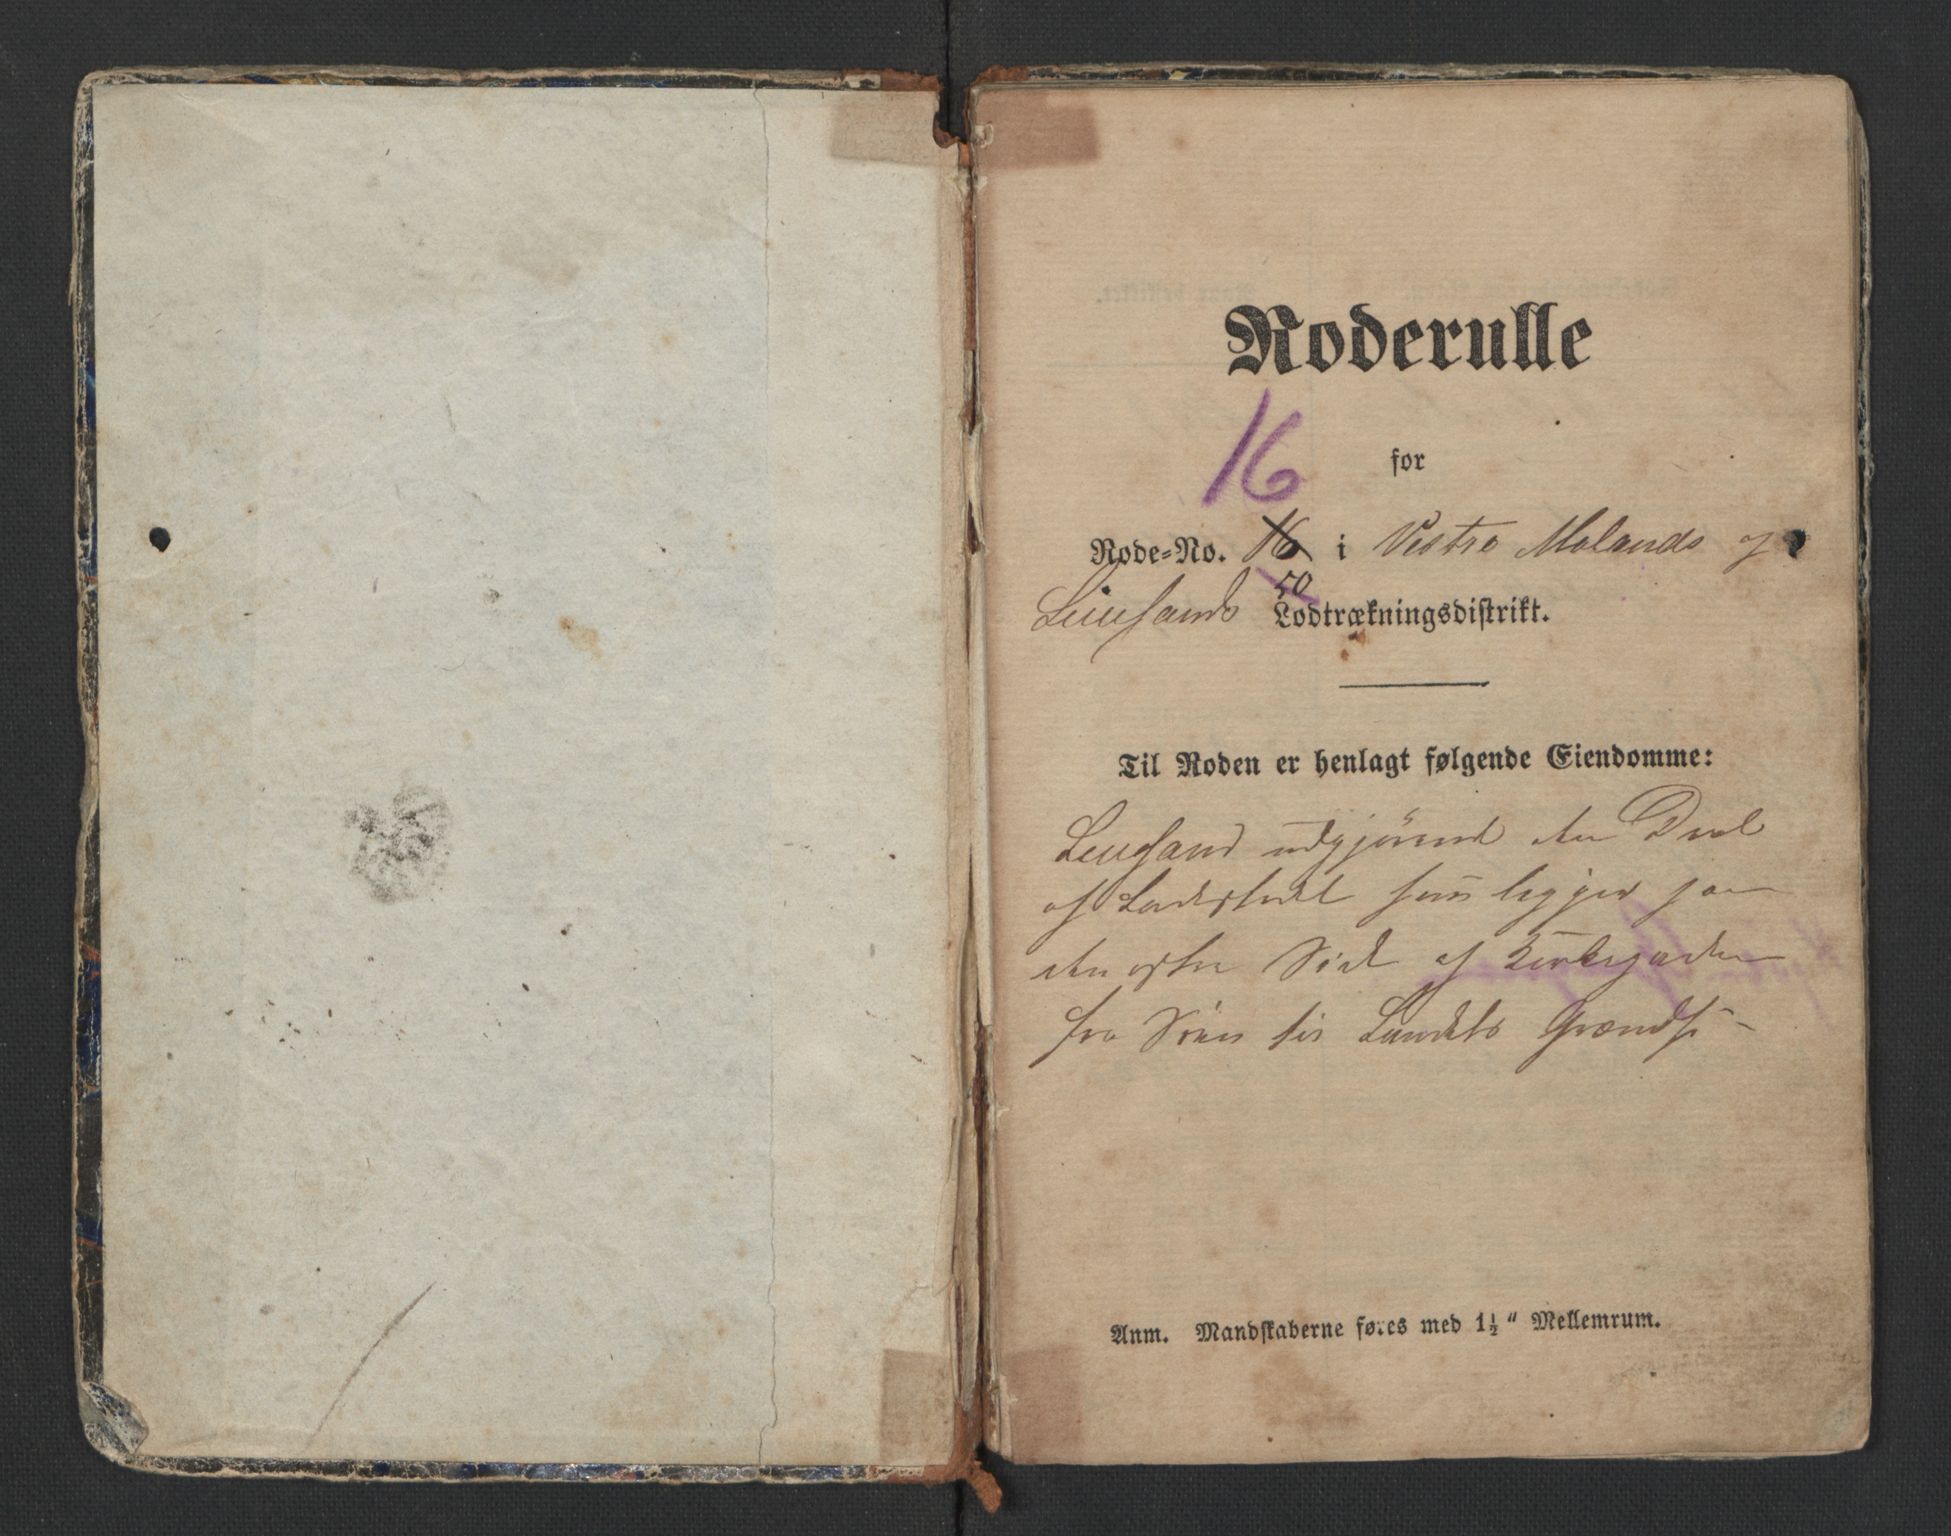 Roderulle
16
for
Rode=No. 16 i Vestre Molands og
50
Lillesands Lodtrækningsdistrikt.
Til Roden er henlagt følgende Eiendomme:
Lillesand udgjörende den Deel
af Ladestedet som ligger paa
den østre Side af Kirkegaden
fra Søen til Landets Grændse
Anm. Mandskaberne føres med 1½" Mellemrum.